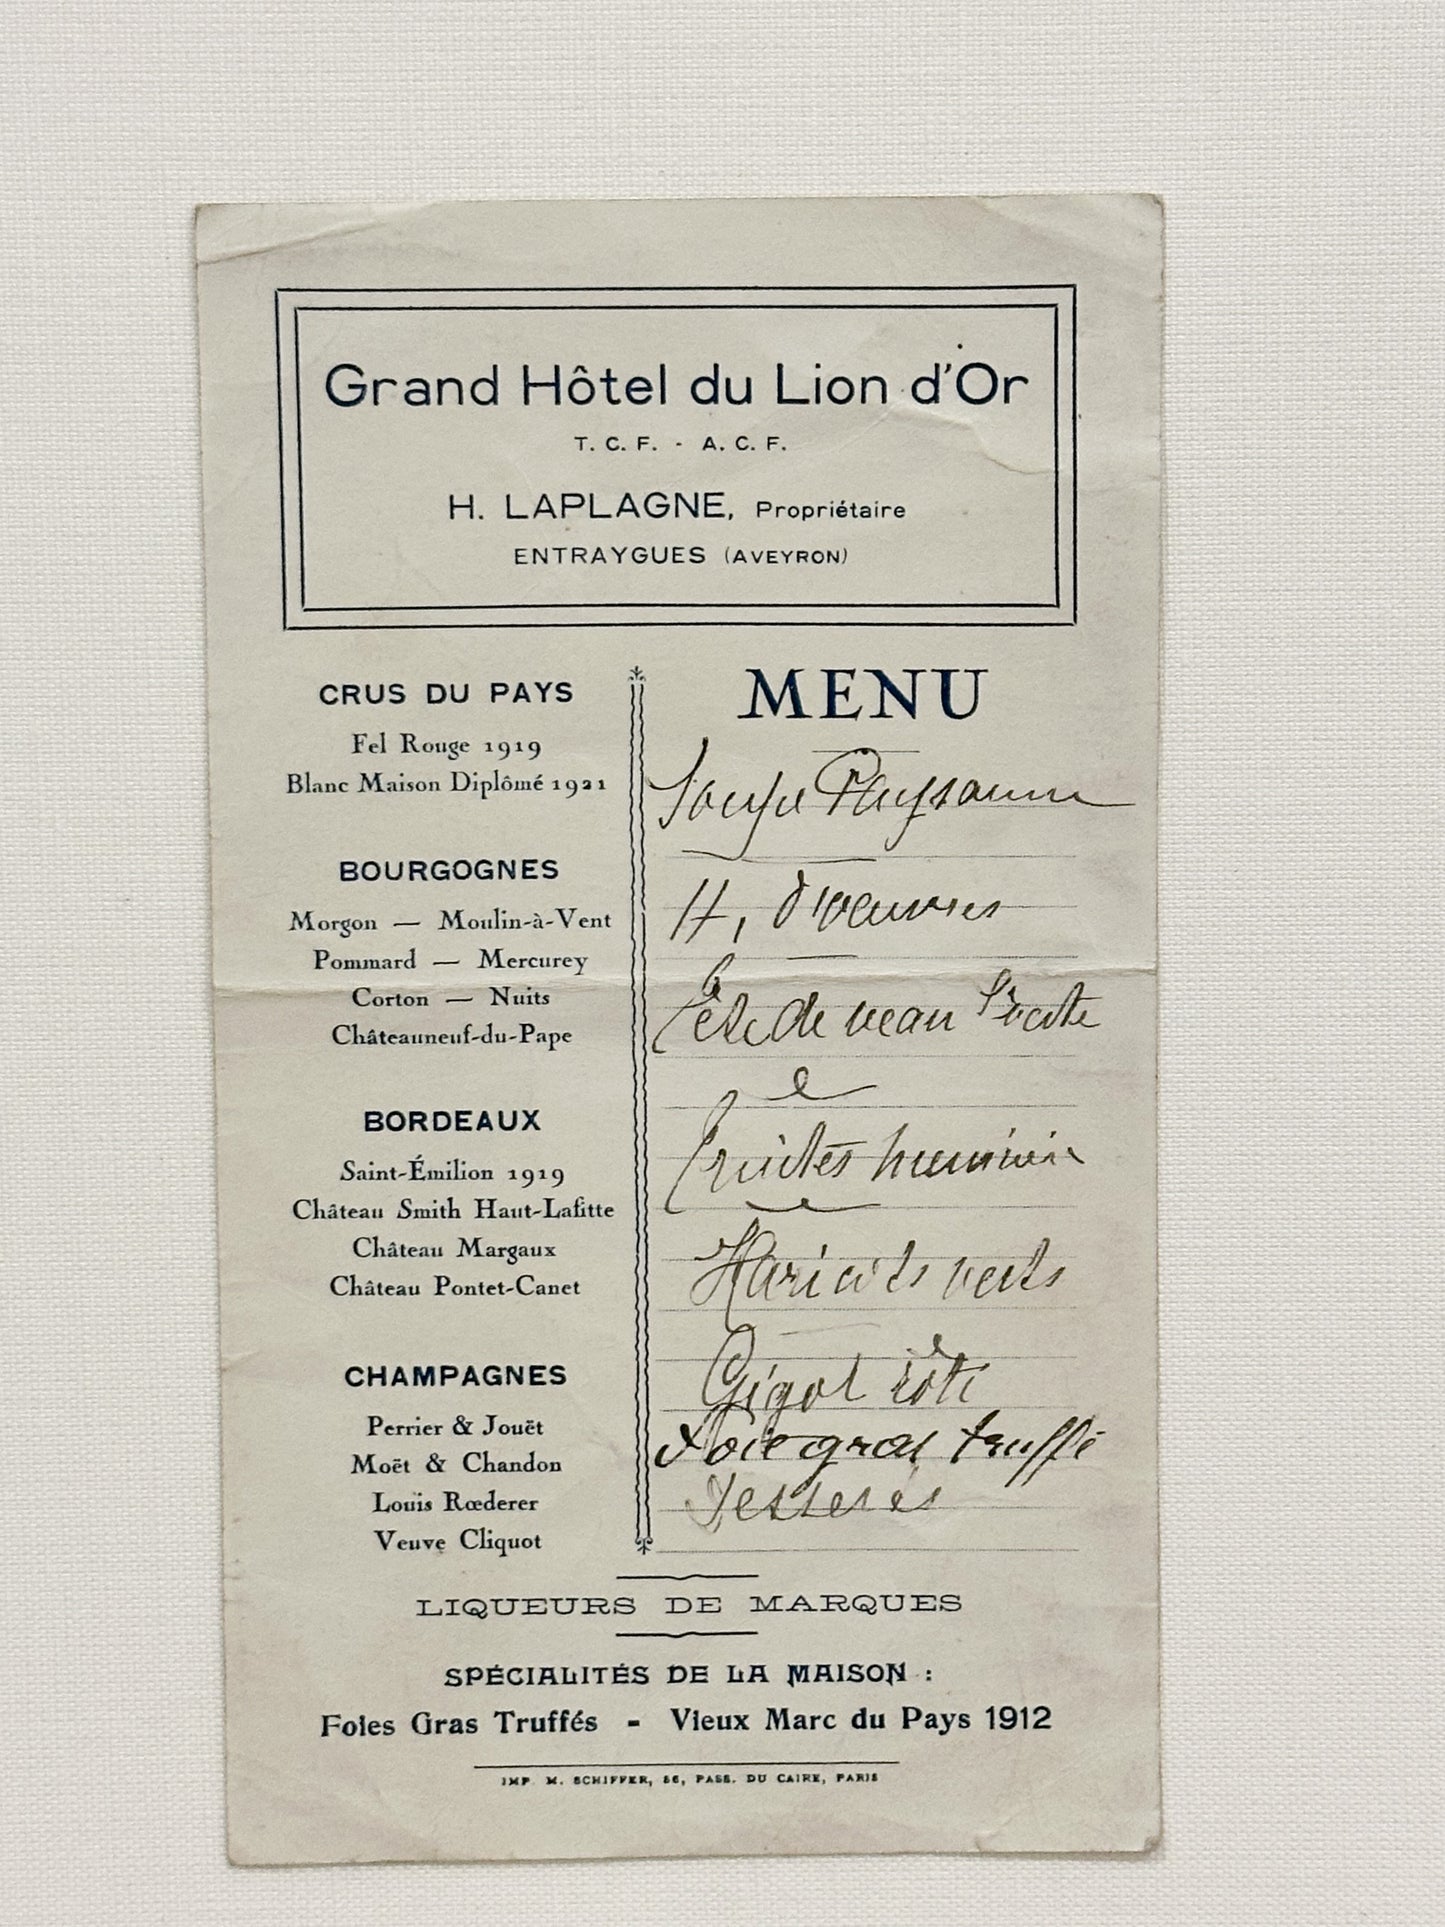 Grand Hôtel du Lion d'Or
T. C. F. - A. C. F.
H. LAPLAGNE, Propriétaire
ENTRAYGUES (AVEYRON)
CRUS DU PAYS
Fel Rouge 1919
Blanc Maison Diplômé 1921
BOURGOGNES
Morgon — Moulin-à-Vent
Pommard — Mercurey
Corton — Nuits
Châteauneuf-du-Pape
BORDEAUX
Saint-Émilion 1919
Château Smith Haut-Lafitte
Château Margaux
Château Pontet-Canet
CHAMPAGNES
Perrier & Jouët
Moët & Chandon
Louis Rœderer
Veuve Cliquot
MENU
Soupe Paysanne
H, d'oeuvres
Tête de veau
Truites meunière
Haricots verts
Gigot rôti
Foie gras truffé
Desserts
LIQUEURS DE MARQUES
SPÉCIALITÉS DE LA MAISON :
Foies Gras Truffés - Vieux Marc du Pays 1912
IMP. M. SCHIFFER, 56, PASS. DU CAIRE, PARIS